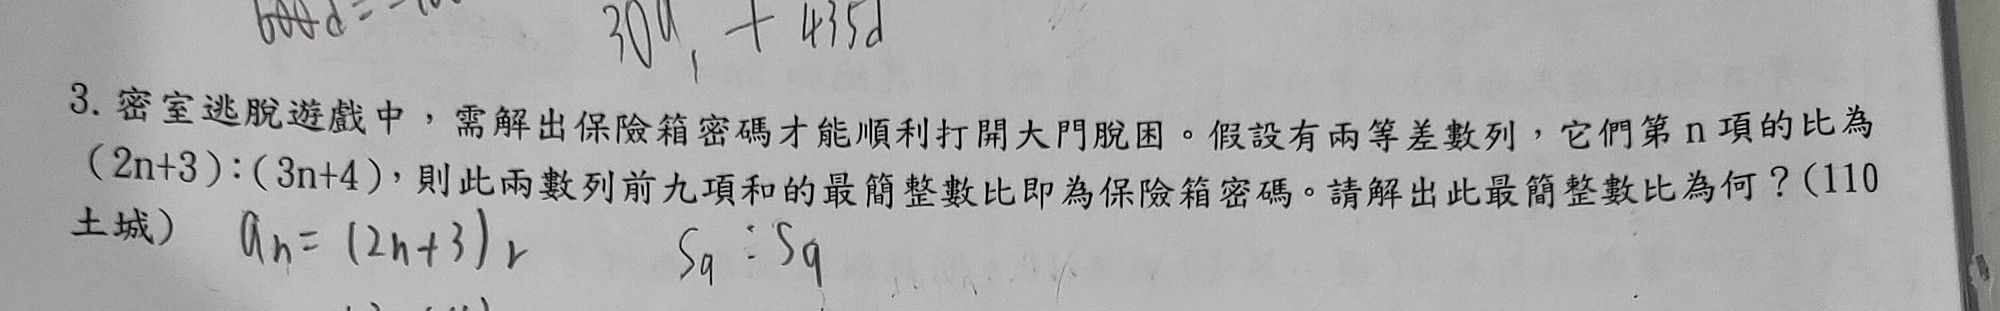 30a₁ + 435d
3. 密室逃脫遊戲中，需解出保險箱密碼才能順利打開大門脫困。假設有兩等差數列，它們第 n 項的比為
(2n+3):(3n+4)，則此兩數列前九項和的最簡整數比即為保險箱密碼。請解出此最簡整數比為何？(110
土城) an = (2n+3) r S9 : S9